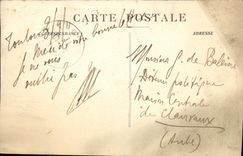 CARTE POSTALE
CORRESPONDANCE
ADRESSE
Toulouse
Merci de votre bonne
je ne vous
oublie pas
Monsieur G. de
Détenu politique
Maison Centrale
de Clairvaux
(Aube)